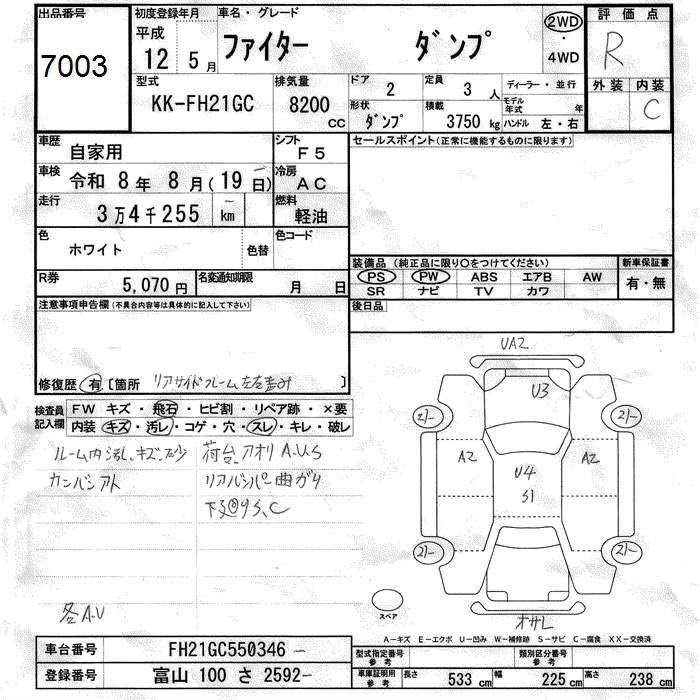 出品番号
7003
初度登録年月
平成
12 5月
車名・グレード
ファイター ダンプ
2WD
・
4WD
評価点
R
外装 内装
C
型式
KK-FH21GC
排気量
8200
CC
ドア
2
定員
3 人
ディーラー・並行
形状
ダンプ
積載
3750 kg
モデル年式 年
ハンドル 左・右
車歴
自家用
シフト
F5
車検
令和 8年 8月(19日)
冷房
AC
走行
3万4千255 km
燃料
軽油
色
ホワイト
色替
色コード
R券
5,070円
名変通知期限
月 日
セールスポイント(正常に機能するものに限ります)
装備品(純正品に限り〇をつけてください)
新車保証書
PS PW ABS エアB AW
有・無
SR ナビ TV カワ
後日品
注意事項申告欄(不具合内容等は具体的に記入して下さい)
修復歴 有 〔箇所 リアサイドフレーム左右歪み 〕
検査員記入欄
FW キズ・飛石・ヒビ割・リペア跡・×要
内装 キズ・汚レ・コゲ・穴・スレ・キレ・破レ
ルーム内汚レ、キズ、
荷台、アオリA.U.S
リアバンパー曲がり
各A.U
UA2
U3
A2
U4
S1
A2
スペア
A－キズ E－エクボ U－凹み W－補修跡 S－サビ C－腐食 XX－交換済
車台番号
FH21GC550346
登録番号
富山 100 さ 2592
型式指定番号
参考
類別区分番号
参考
車庫証明用
参考
長さ 533 cm
幅 225 cm
高さ 238 cm